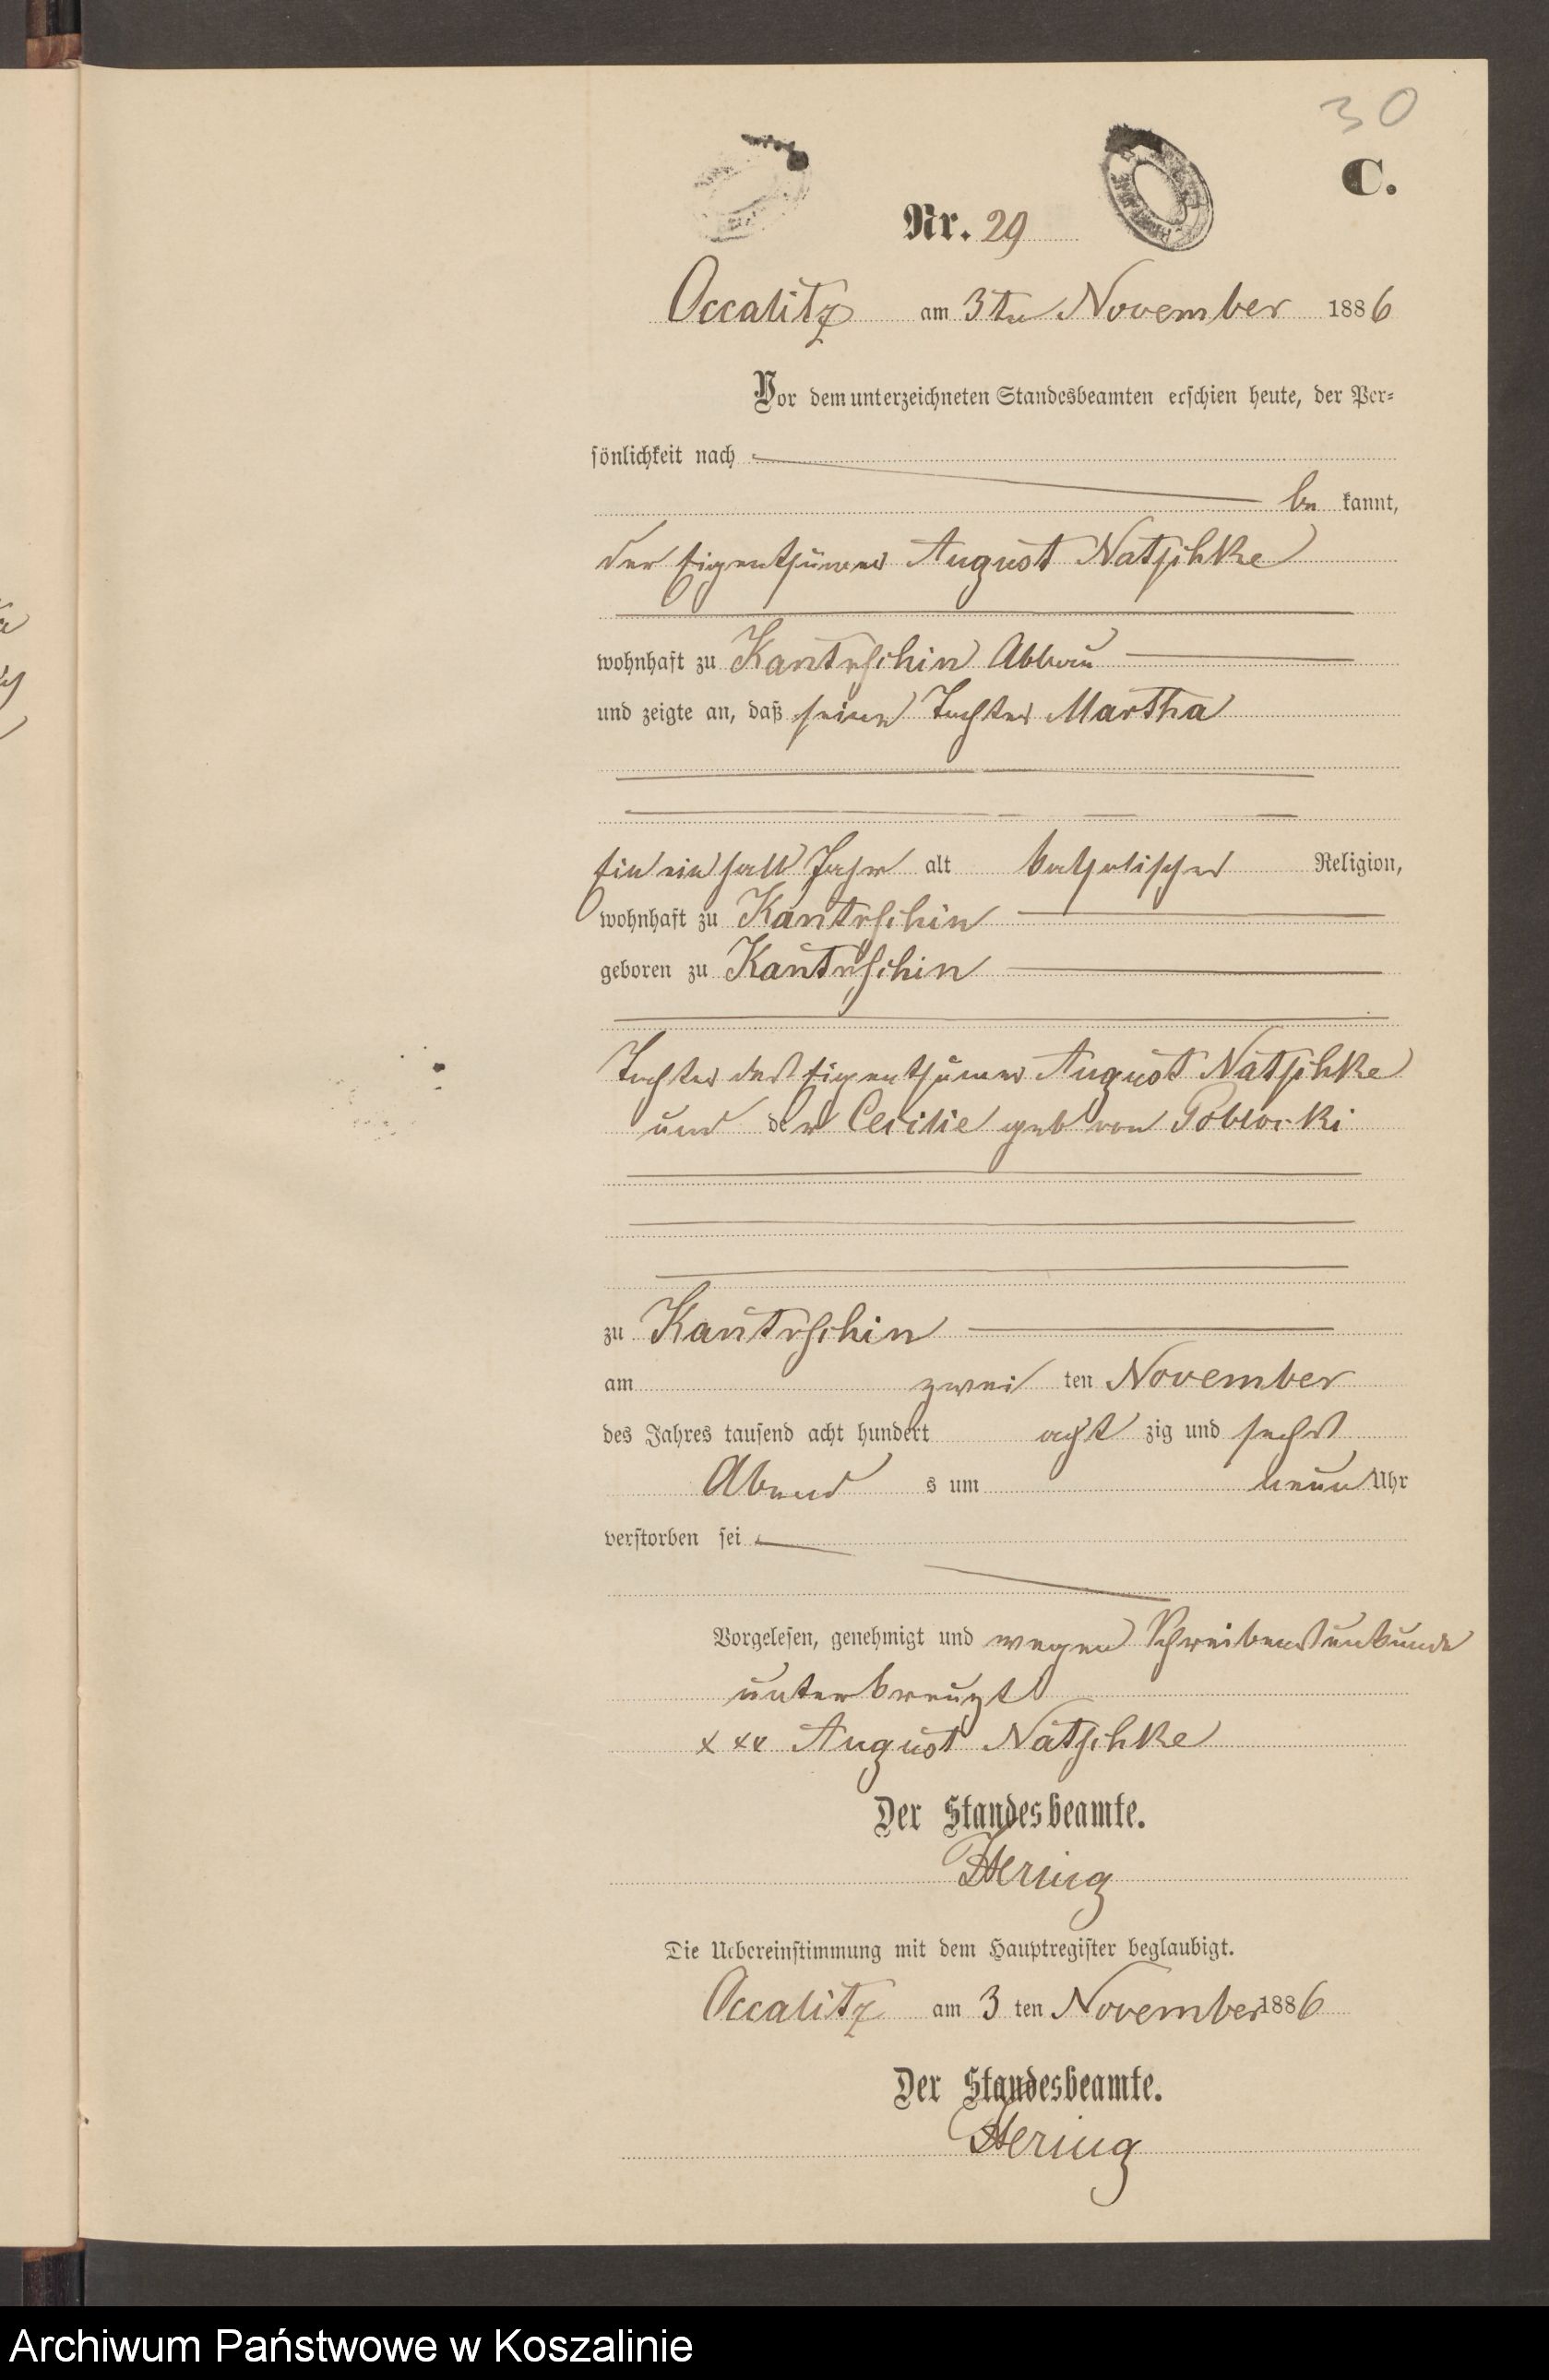 30
C.
Nr. 29
Occalitz am 3ten November 1886
Vor dem unterzeichneten Standesbeamten erschien heute, der Per-
sönlichkeit nach
be kannt,
der Eigenthümer August Natschke
wohnhaft zu Kantrschin Abbau
und zeigte an, daß seine Tochter Martha
Ein ein halb Jahr alt katholischer Religion,
wohnhaft zu Kantrschin
geboren zu Kantrschin
Tochter des Eigenthümer August Natschke
und der Cecilie geb von Poblocki
zu Kantrschin
am zwei ten November
des Jahres tausend acht hundert acht zig und sechs
Abend s um neun Uhr
verstorben sei
Vorgelesen, genehmigt und wegen Schreibensunkunde
unterkreuzt
xxx August Natschke
Der Standesbeamte.
Hering
Die Uebereinstimmung mit dem Hauptregister beglaubigt.
Occalitz am 3 ten November 1886
Der Standesbeamte.
Hering
Archiwum Państwowe w Koszalinie